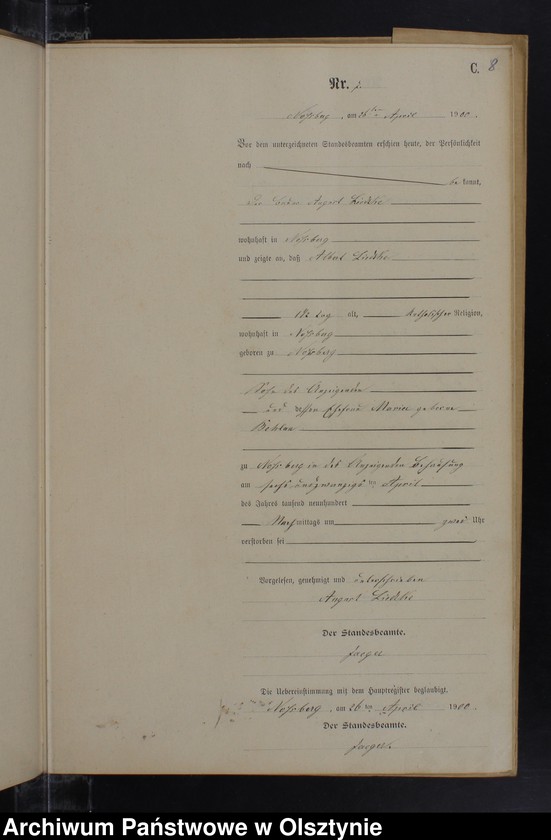 C. 8
Nr.
Noßberg, am 26ten April 1900.
Vor dem unterzeichneten Standesbeamten erschien heute, der Persönlichkeit
nach
be kannt,
August
wohnhaft in Noßberg
und zeigte an, daß Albert
alt, katholischer Religion,
wohnhaft in Noßberg
geboren zu Noßberg
Sohn des Anzeigenden
und dessen Ehefrau Maria geborene
zu Noßberg in des Anzeigenden Behausung
am sechs und zwanzigsten April
des Jahres tausend neunhundert
Nachmittags um zwei Uhr
verstorben sei
Vorgelesen, genehmigt und unterschrieben
August
Der Standesbeamte.
Jaeger
Die Uebereinstimmung mit dem Hauptregister beglaubigt.
Noßberg, am 26ten April 1900
Der Standesbeamte.
Jaeger.
Archiwum Państwowe w Olsztynie